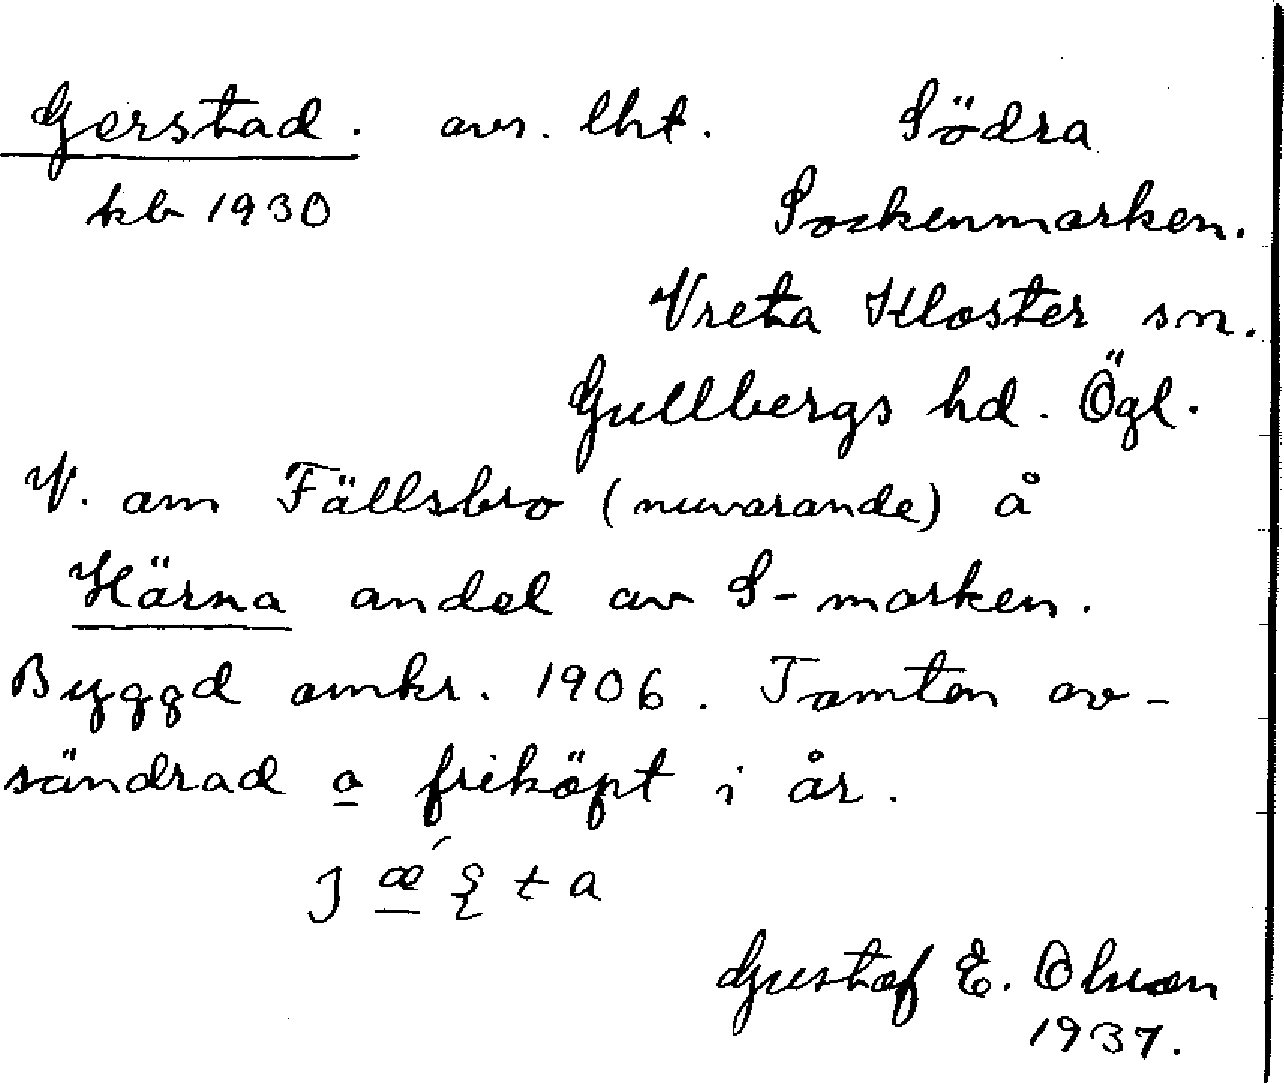 Gerstad. avs. lht. Södra
kb 1930 Sockenmarken.
Vreta Kloster sn.
Gullbergs hd. Ögl.
V. om Fällsbro (nuvarande) å
Härna andel av S-marken.
Byggd omkr. 1906. Tomten av-
söndrad o friköpt i år.
Gustaf E. Olsson
1937.